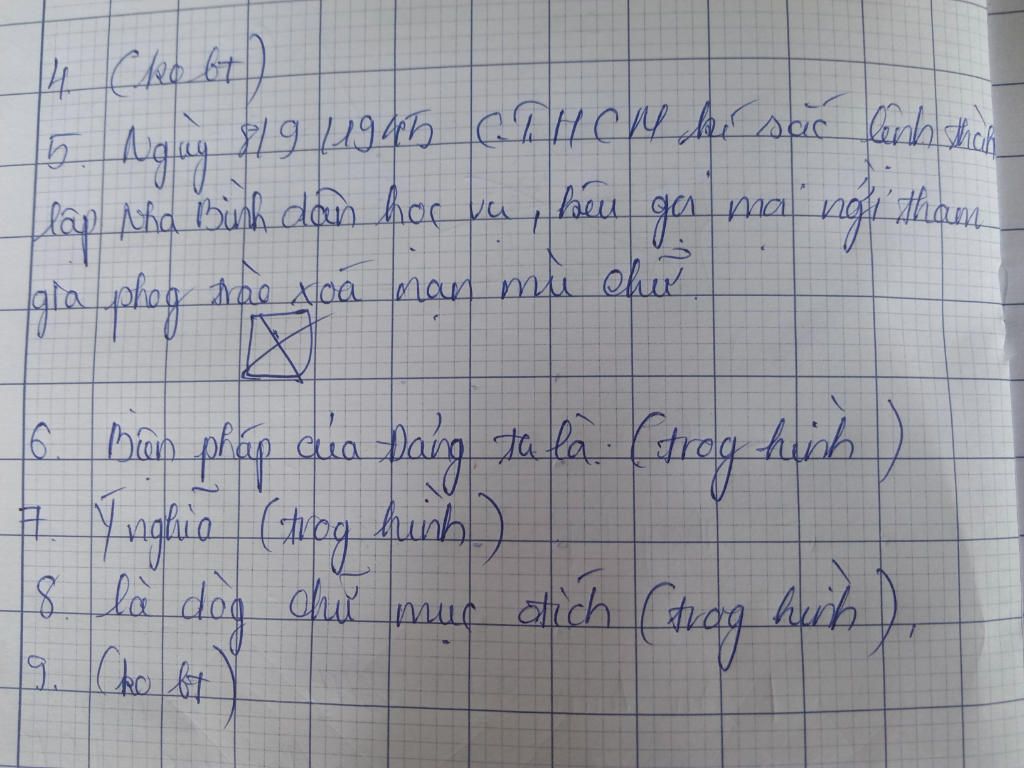 4. (ko bt)
5. Ngày 8/9/1945 C.T.HCM kí sắc lệnh thàh
lập Nha Bình dân học vụ, kêu gọi mọi ngời tham
gia phog trào xoá nạn mù chữ.
6. Biện pháp của Đảng ta là: (trog hình)
7. Ý nghĩa (trog hình)
8. là dòg chữ mục đích (trog hình).
9. (ko bt)